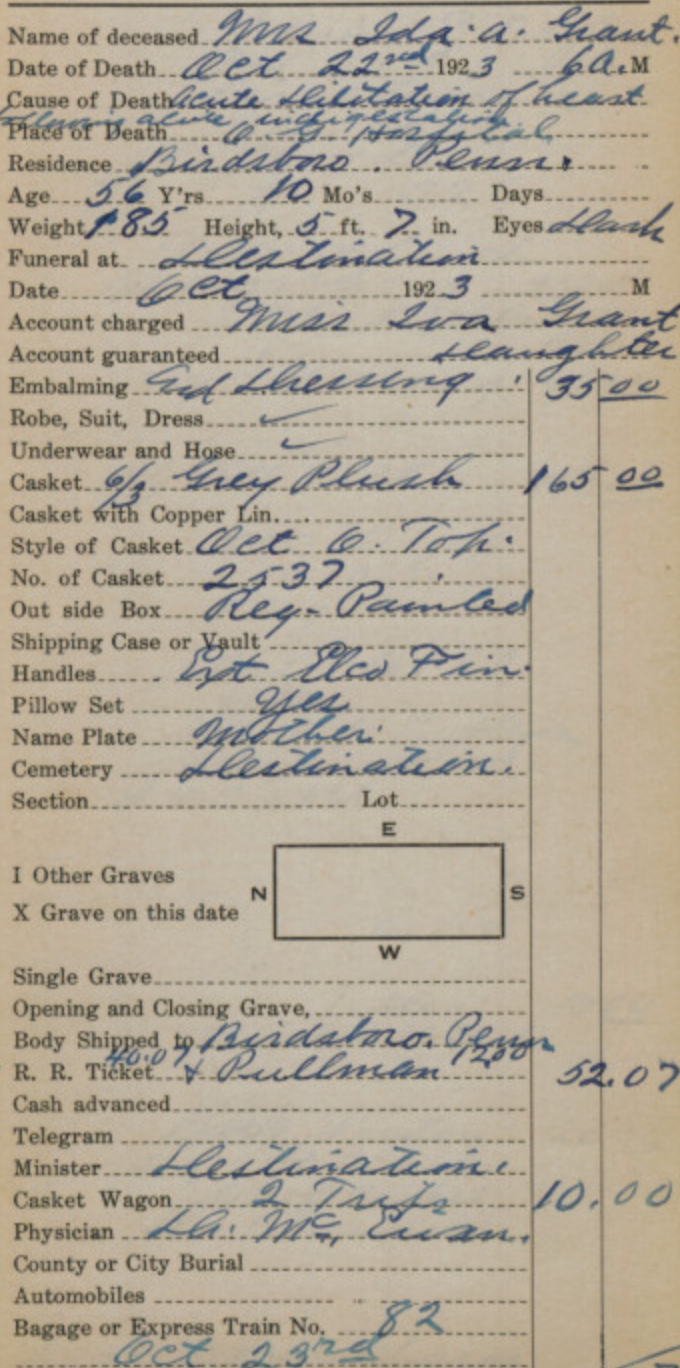 Name of deceased Mrs Ida. A. Grant.
Date of Death Oct 22nd 1923 6 A.M
Cause of Death Acute Dilitation of heart
acute indigestion
Place of Death O. G Hospital
Residence Birdsboro. Penn.
Age 56 Y'rs 10 Mo's Days
Weight 185 Height, 5 ft. 7 in. Eyes Dark
Funeral at Destination
Date Oct 1923 M
Account charged Miss Iva Grant
Account guaranteed Daughter
Embalming and Dressing 35 00
Robe, Suit, Dress ✓
Underwear and Hose ✓
Casket 6/3 Grey Plush 165 00
Casket with Copper Lin.
Style of Casket Oct O. Top.
No. of Casket 2537
Out side Box Reg- Painted
Shipping Case or Vault
Handles Ext Elco Fin.
Pillow Set yes
Name Plate Mother.
Cemetery Destination.
Section Lot
E
I Other Graves
N S
X Grave on this date
W
Single Grave
Opening and Closing Grave,
Body Shipped to Birdsboro. Penn
40.07 12.00
R. R. Ticket & Pullman 52.07
Cash advanced
Telegram
Minister Destination.
Casket Wagon 2 Trips 10.00
Physician Dr. Mc, Ewan.
County or City Burial
Automobiles
Bagage or Express Train No. 82
Oct 23rd